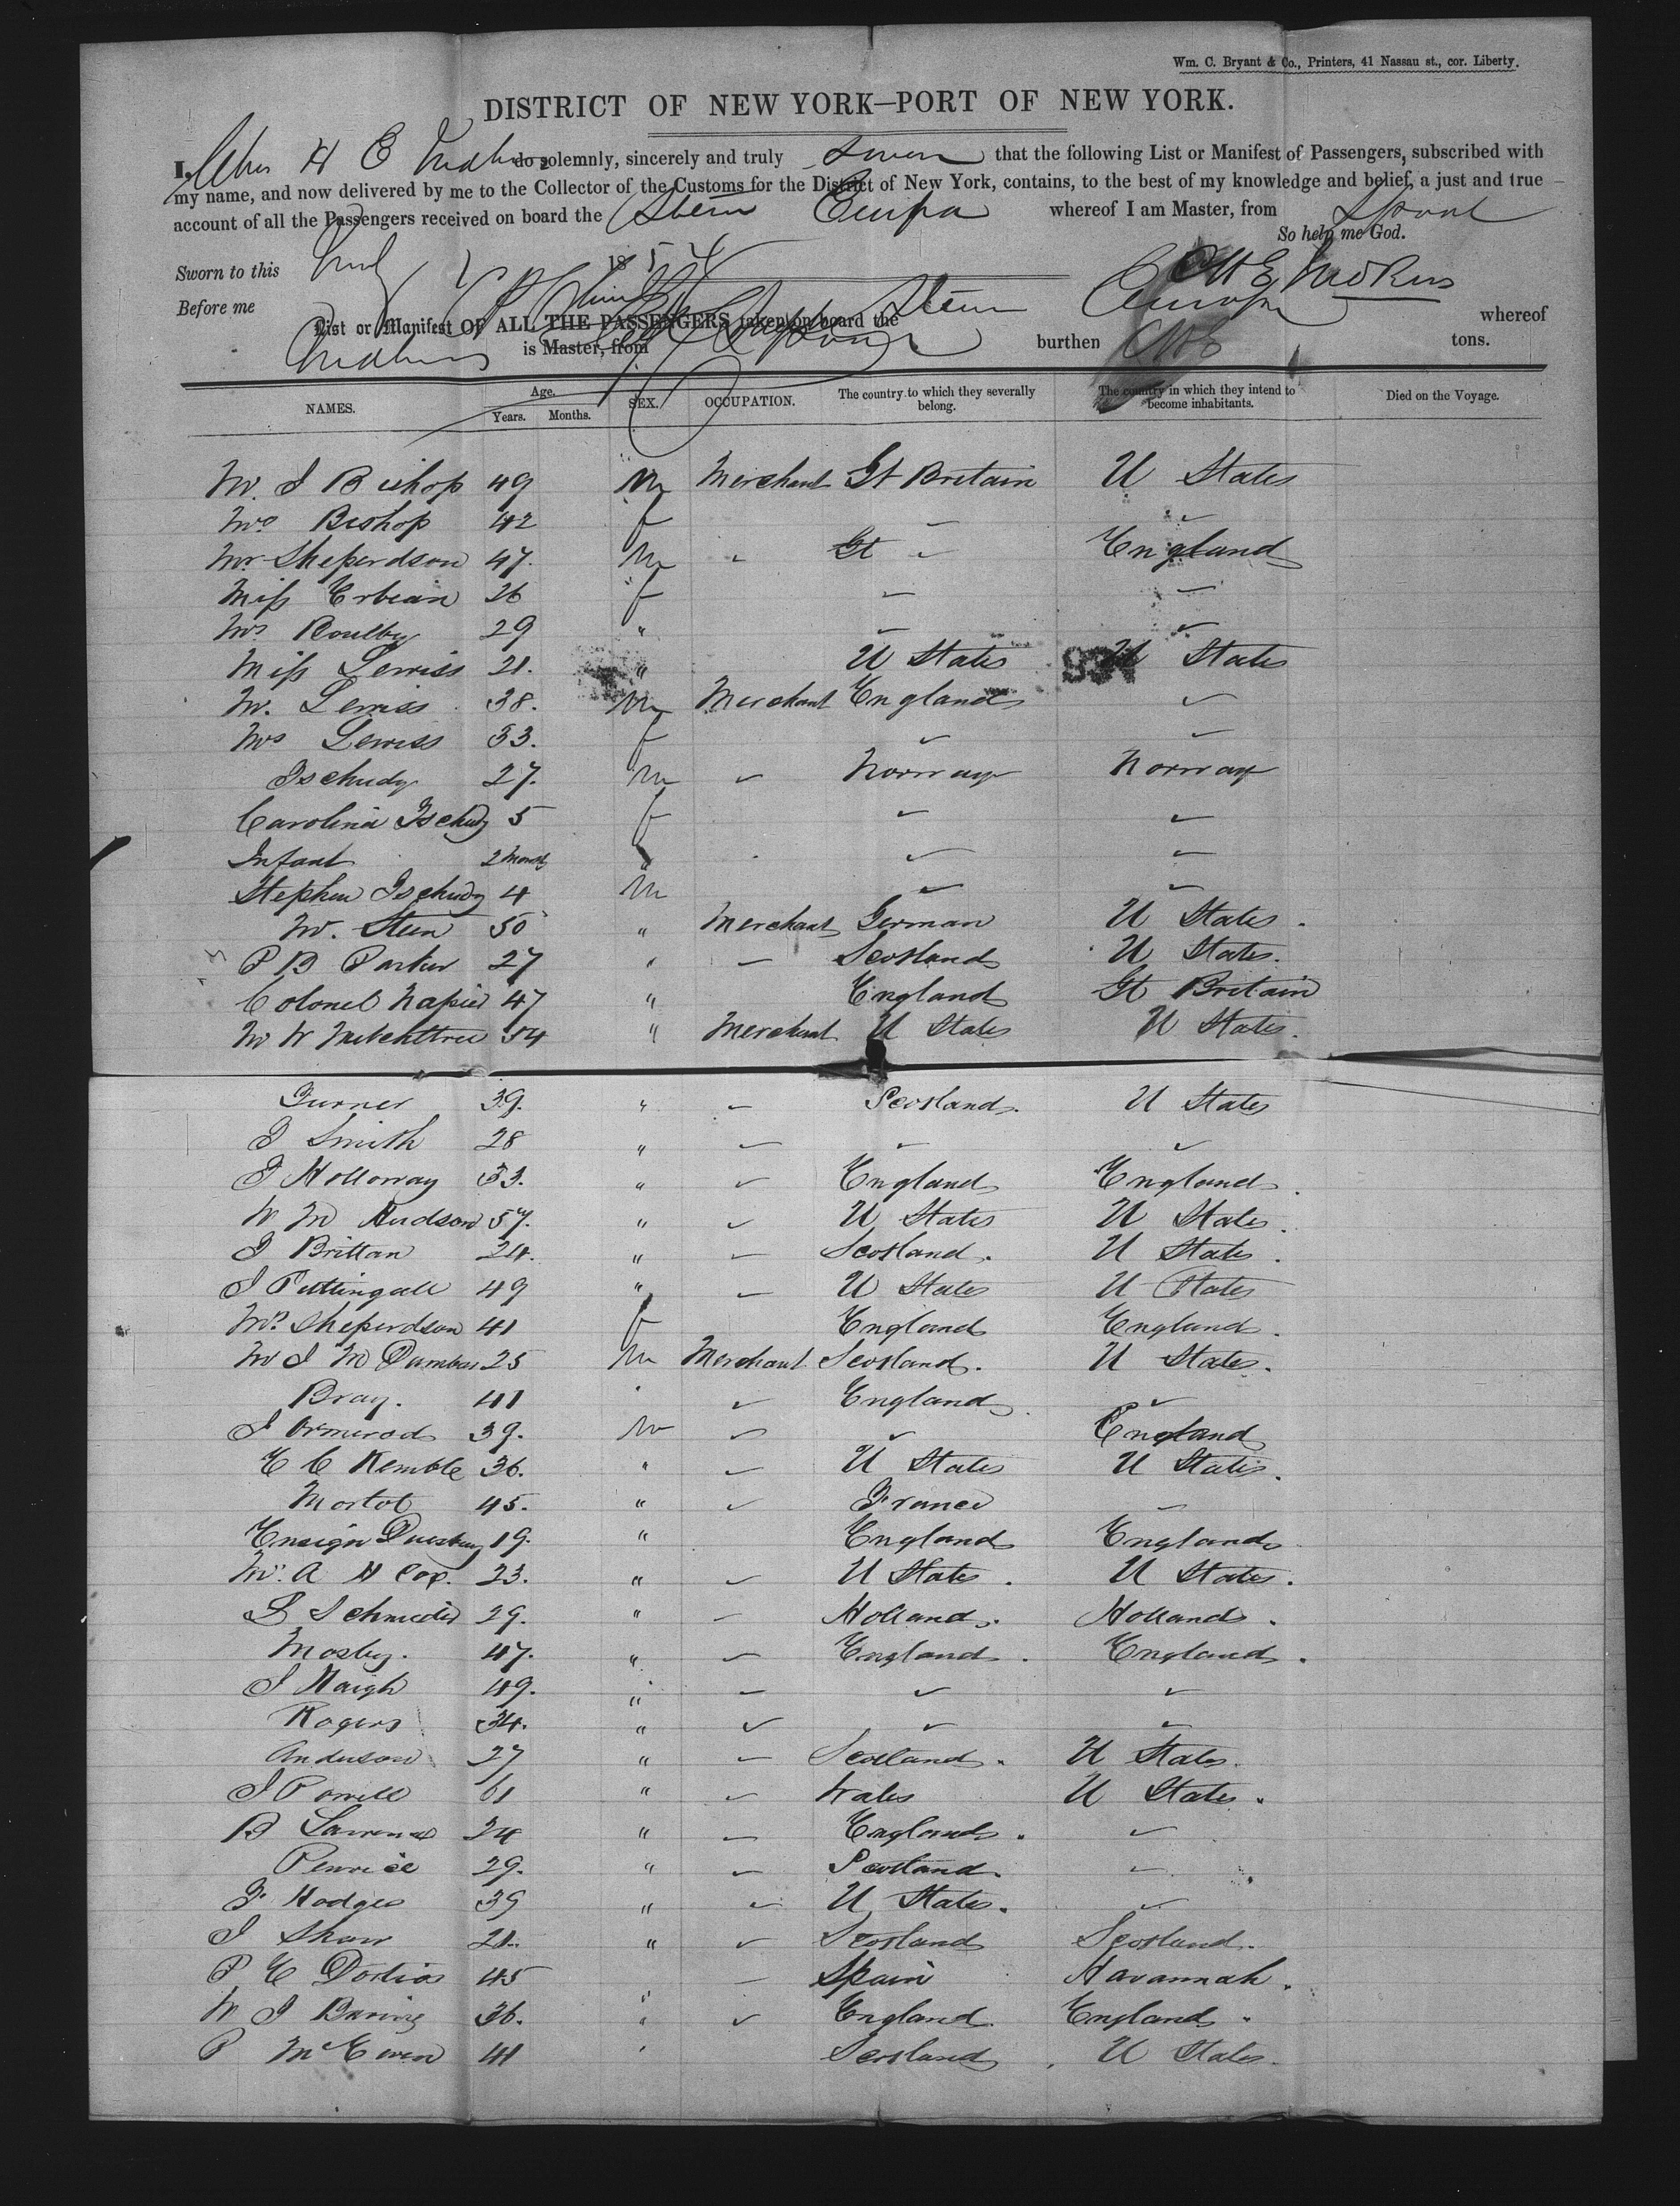 Wm. C. Bryant & Co., Printers, 41 Nassau st., cor. Liberty.
DISTRICT OF NEW YORK—PORT OF NEW YORK.
I, H E do solemnly, sincerely and truly swear that the following List or Manifest of Passengers, subscribed with
my name, and now delivered by me to the Collector of the Customs for the District of New York, contains, to the best of my knowledge and belief, a just and true
account of all the Passengers received on board the Steam Europa whereof I am Master, from Lpool
So help me God.
Sworn to this 1854
Before me
List or Manifest OF ALL THE PASSENGERS taken on board the Steam Europa whereof
is Master, from burthen tons.
NAMES. Age. Years. Months. SEX. OCCUPATION. The country to which they severally belong. The country in which they intend to become inhabitants. Died on the Voyage.
Mr. J Bishop 49 M Merchant Gt Britain U States
Mrs Bishop 42 f
Mr Sheperdson 47. M " Gt " England
Miss 26 f
Mrs Boulby 29 "
Miss Lewiss 21. " U States U States
Mr. Lewiss 38. M Merchant England
Mrs Lewiss 33. f
Tschudy 27. M Norway Norway
Carolina Tschudy 5 f
Infant 2 Months "
Stephen Tschudy 4 M
Mr. Stein 50 " Merchant German U States.
P B Parker 27 " Scotland U States.
Colonel Napier 47 " England Gt Britain
Mr W 54 " Merchant U States U States.
Turner 39. " Scotland. U States
J Smith 28 "
J Holloway 33. " England England.
W M Hudson 57. " U States U States.
J Brittan 24. " Scotland. U States.
J Pettingall 49 " U States U States
Mrs. Sheperdson 41 f England England.
Mr J M Dumbar 25 M Merchant Scotland. U States.
Bray. 41 England
J Ormerod 39. M England
E C Kemble 36. " U States U States.
Mortot 45. " France
Ensign 19. " England England
Mr. A H Cox. 23. " U States. U States.
L Schmeder 29. " Holland. Holland.
Mosley. 47. " England. England.
J Haigh 49. "
Rogers 34. "
Anderson 27 " Scotland. U States.
J Powell 61 " Wales U States.
B Lawrence 24 " England.
Penrice 29. " Scotland.
F Hodges 39 " U States.
J Shaw 21. " Scotland Scotland.
P E 45 Spain Havannah.
W J Baring 36. " England England.
P McEwen 41 " Scotland U States.